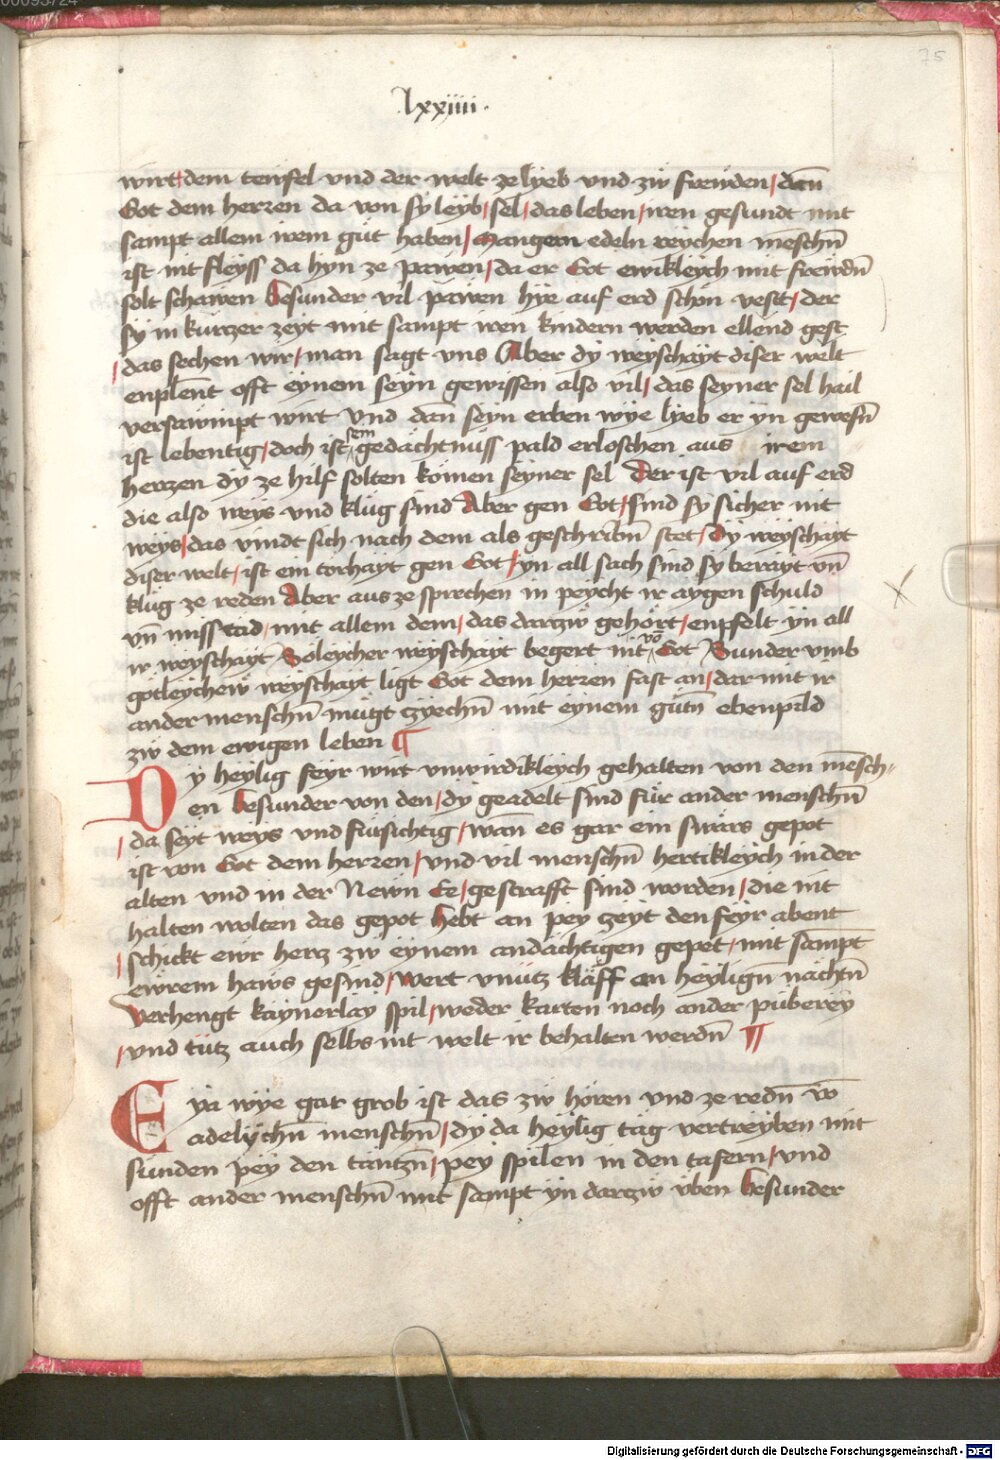 75
lxxiiii.
wirt/dem tewfel vnd der welt ze lyeb vnd zw frewden/dan̄
Got dem herren da von sy leyb/sel/das leben/iren gesundt mit
sampt allem irem gut haben/Mangem edeln reychen mēschn̄
ist nit fleyss da hyn ze pawen/da er Got ewikleych mit frewdn̄
solt schawen Besunder vil pawen hye auf erd schon vest/der
sy in kurzer zeyt mit sampt iren kindern werden ellend gest
/das sechen wir/man sagt vns Aber dy weyschayt diser welt
enplent offt eynem seyn gewissen also vil/das seyner sel hail
versawmpt wirt vnd dan seyn erben wye lyeb er yn gewesn̄
ist lebentig/doch ist sein gedächtnuss pald erloschen aus irem
herczen dy ze hilf solten komen seyner sel Der ist vil auf erd
die also weys vnd klug sind Aber gen Got/sind sy sicher nit
weys/das vindt sich nach dem als geschribn̄ stet/Dy weyschayt
diser welt/ist ein torhayt gen Got/yn all sach sind sy berayt vn̄
klug ze reden Aber aus ze sprechen in peycht ir aygen schuld
vn̄ missetad/mit allem dem/das darzw gehört/enpfelt yn all
ir weyschayt Söleycher weyschayt begert nit vō Got Sunder vmb
götleychew weyschayt ligt Got dem herren fast an/dar mit ir
ander menschn̄ mugt zyechn̄ mit eynem gutn̄ ebenpild
zw dem ewigen leben ¶
Dy heylig feyr wirt vnwirdikleych gehalten von den mēsch-
en Besunder von den/dy geadelt sind für ander menschn̄
/da seyt weys vnd fürsichtig/wan̄ es gar ein swärs gepot
ist von Got dem herren/vnd vil menschn̄ hertikleych in der
alten vnd in der Newn Ee/gestrafft sind worden/die nit
halten wolten das gepot hebt an pey zeyt den feyr abent
/schickt ewr hercz zw eynem andächtigen gepet/mit sampt
ewrem haws gesind/Wert vnütz kläff an heylign̄ nächtn̄
Verhengt kaynerlay spil/weder karten noch ander püberey
/vnd tütz auch selbs nit welt ir behalten werdn̄ ¶
Eya wye gar grob ist das zw hören vnd ze redn̄ vō
adelychn̄ menschn̄/dy da heylig tag vertreyben mit
sunden pey den täntzn̄/pey spilen in den tafern/vnd
offt ander menschn̄ mit sampt yn darzw üben Besunder
Digitalisierung gefördert durch die Deutsche Forschungsgemeinschaft - DFG